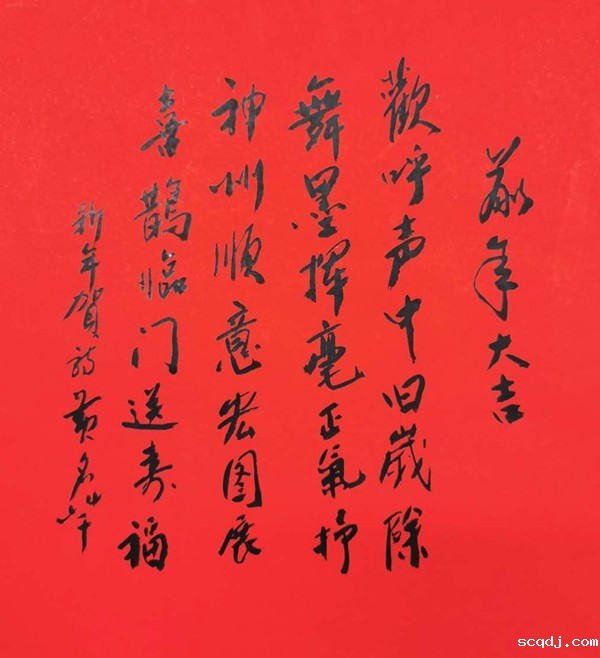 年大吉
歡呼声中旧歲除
舞墨揮毫正氣抒
神州順意宏图展
喜鵲臨门送寿福
新年賀詩黄名
scqdj.com